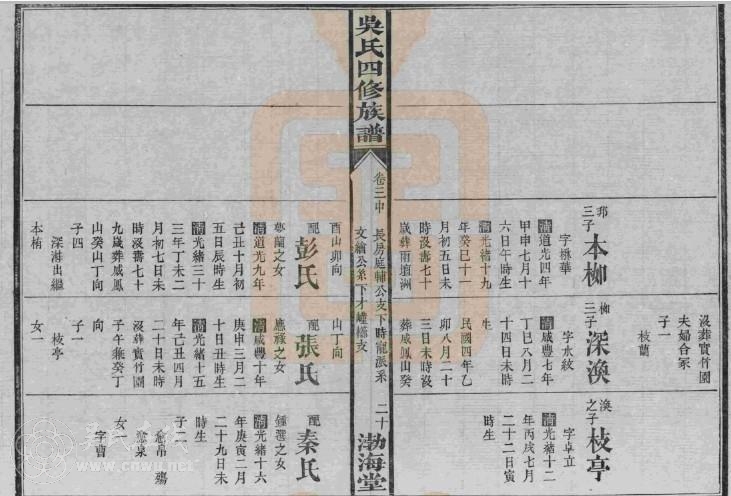 三子
本栁
字楙華
清道光四年
甲申七月十
六日午時生
清光緒十九
年癸巳十一
月初五日未
時沒壽七十
歲葬雨壇洲
酉山卯向
配
彭氏
夢蘭之女
清道光九年
己丑十月初
五日辰時生
清光緒三十
三年丁未二
月初七日未
時沒壽七十
九歲葬威鳳
山癸山丁向
子四
深漋出繼
本栯
沒葬實竹園
夫婦合冢
子一
枝蘭
栁
三子
深渙
字水紋
清咸豐七年
丁巳八月二
十四日未時
生
民國四年乙
卯八月二十
三日未時沒
葬威鳳山癸
山丁向
配
張氏
應祿之女
清咸豐十年
庚申三月二
十日丑時生
清光緒十五
年己丑四月
二十日未時
沒葬實竹園
子午兼癸丁
向
子一
枝亭
女一
渙
之子
枝亭
字卓立
清光緒十二
年丙戌七月
二十二日寅
時生
配
秦氏
鍾彇之女
清光緒十六
年庚寅二月
二十九日未
時生
子二
女
吳氏四修族譜
卷三中
長房庭輔公支下時寵派系
文繪公系下才
二十
渤海堂